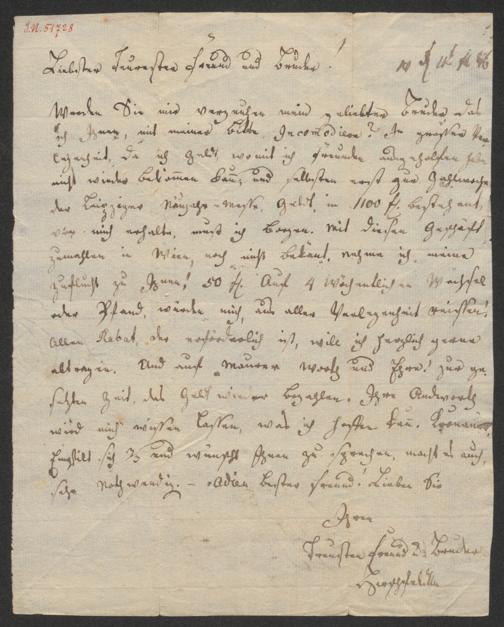 J.N. 51728
Liebster Teurester Freund und Bruder!
Werden Sie mir verzeihen mein geliebter Bruder das
ich Ihnen, mit meiner bitte Incomodire? In groser Ver
legenheit, da ich Geld, womit ich Freunden ausgeholfen habe
nicht wieder bekommen kan, und selbsten erst zur Zahlwoche
der Leipziger Neujahr-Messe, Geld, in 1100 fl. bestehent
vor mich erhalte, must ich borgen. Mit diesen Geschäft
zumahlen in Wien, noch nicht bekant, nehme ich, meine
zuflucht zu Ihnen! 50 fl. Auf 4 Wöchentlichen Wechsel
oder Pfand, würden mich, aus aller Verlegenheit reissen!
Allen Rabat, der erforderlich ist, will ich herzlich gerne
abtragen. Und auf Maurer Wort und Ehre! zur ge
setzten Zeit, das Geld wieder bezahlen. Ihre Andwordt
wird mich wissen lassen, was ich hoffen kan. Kronauer
Empfilt sich und wünscht Ihnen zu sprechen, macht es auch,
sehr nothwendig. – Adieu bester Freund! Lieben Sie
Ihren
Treusten Freund & Bruder